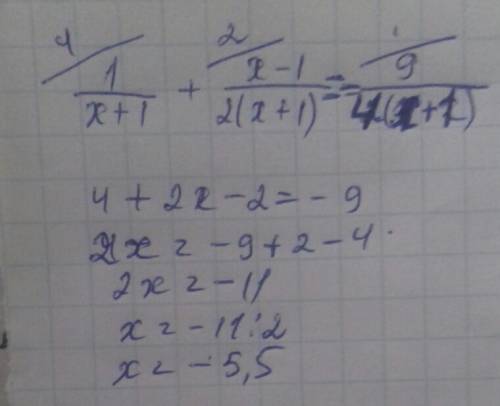 4 2 1
1/(x+1) + (x-1)/(2(x+1)) = 9/(4(x+1))
4 + 2x - 2 = - 9
2x = -9 + 2 - 4
2x = -11
x = -11:2
x = -5,5